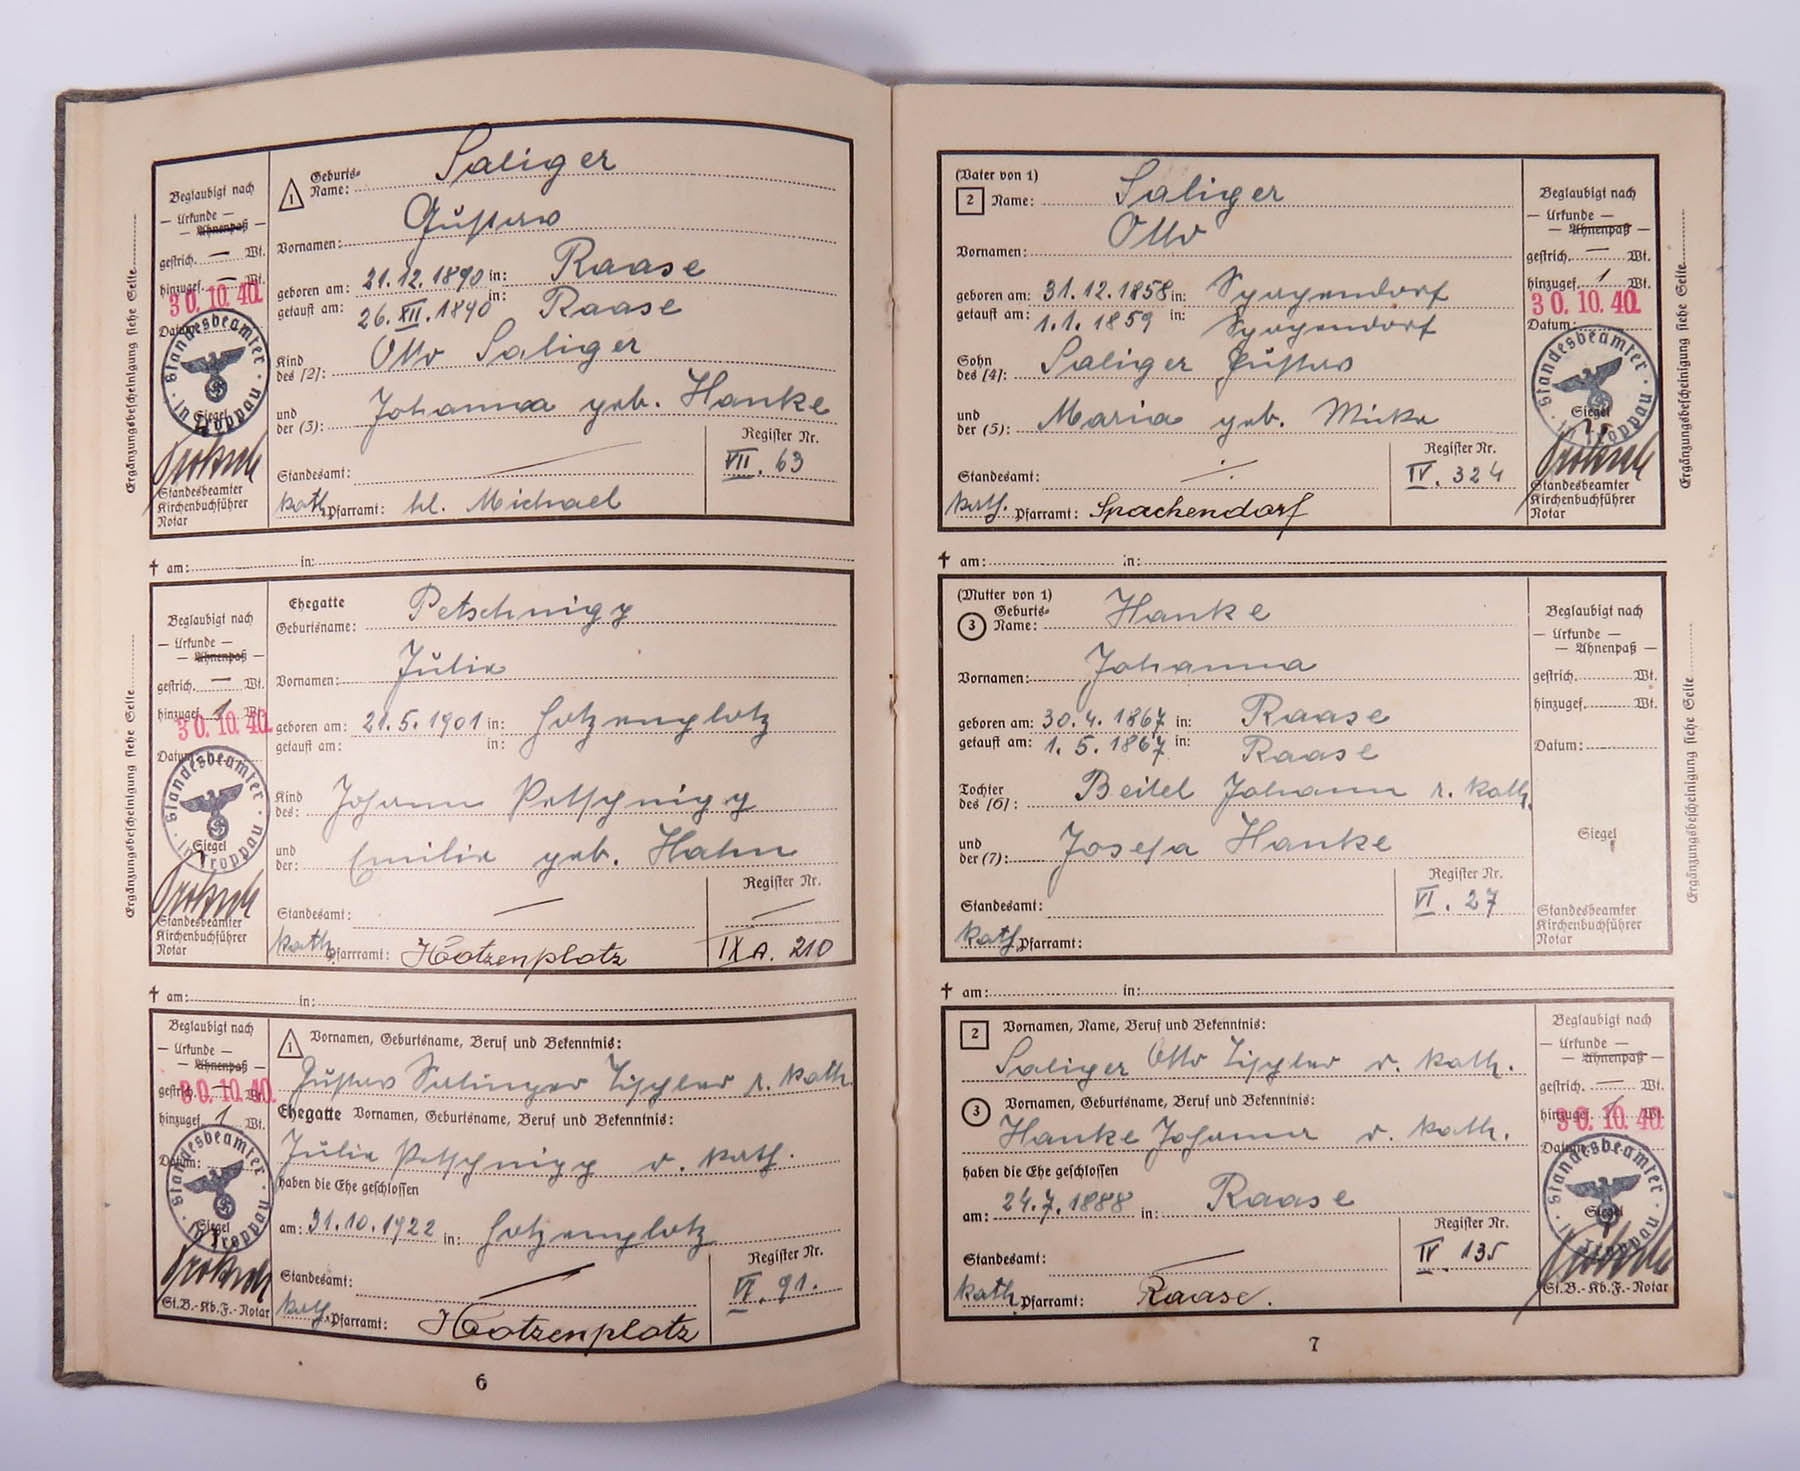 Ergänzungsbescheinigung siehe Seite
Beglaubigt nach
— Urkunde —
— Ahnenpaß —
gestrich. — Wt.
hinzugef. — Wt.
30.10.40.
Datum:
Standesbeamter in Troppau
Siegel
Standesbeamter
Kirchenbuchführer
Notar
1 Geburts-Name: Saliger
Vornamen: Gustav
geboren am: 21.12.1890 in: Raase
getauft am: 26.XII.1890 in: Raase
Kind des [2]: Otto Saliger
und der (3): Johanna geb. Hanke
Standesamt: —
Register Nr. VII. 63
kath. Pfarramt: hl. Michael
† am: in:
Ergänzungsbescheinigung siehe Seite
Beglaubigt nach
— Urkunde —
— Ahnenpaß —
gestrich. — Wt.
hinzugef. 1 Wt.
30.10.40.
Datum:
Standesbeamter in Troppau
Siegel
Standesbeamter
Kirchenbuchführer
Notar
Ehegatte
Geburtsname: Petschnigg
Vornamen: Julie
geboren am: 21.5.1901 in: Hotzenplotz
getauft am: in:
Kind des: Johann Petschnigg
und der: Emilie geb. Hahn
Standesamt: —
Register Nr. —
kath. Pfarramt: Hotzenplotz IX A. 210
† am: in:
Beglaubigt nach
— Urkunde —
— Ahnenpaß —
gestrich. — Wt.
30.10.40.
hinzugef. 1 Wt.
Datum:
Standesbeamter in Troppau
Siegel
St.B.-Kb.F.-Notar
1 Vornamen, Geburtsname, Beruf und Bekenntnis:
Gustav Salinger Tischler r. kath.
Ehegatte Vornamen, Geburtsname, Beruf und Bekenntnis:
Julie Petschnigg r. kath.
haben die Ehe geschlossen
am: 31.10.1922 in: Hotzenplotz
Standesamt: —
Register Nr. VI. 91.
kath. Pfarramt: Hotzenplotz
6
(Vater von 1)
2 Name: Saliger
Vornamen: Otto
geboren am: 31.12.1858 in: Spachendorf
getauft am: 1.1.1859 in: Spachendorf
Sohn des [4]: Saliger Gustav
und der (5): Maria geb.
Standesamt:
Register Nr. IV. 324
kath. Pfarramt: Spachendorf
Beglaubigt nach
— Urkunde —
— Ahnenpaß —
gestrich. — Wt.
hinzugef. 1 Wt.
30.10.40.
Datum:
Standesbeamter in Troppau
Siegel
Standesbeamter
Kirchenbuchführer
Notar
Ergänzungsbescheinigung siehe Seite
† am: in:
(Mutter von 1)
3 Geburts-Name: Hanke
Vornamen: Johanna
geboren am: 30.4.1867 in: Raase
getauft am: 1.5.1867 in: Raase
Tochter des [6]: Beitel Johann r. kath.
und der (7): Josefa Hanke
Standesamt:
Register Nr. VI. 27
kath. Pfarramt:
Beglaubigt nach
— Urkunde —
— Ahnenpaß —
gestrich. Wt.
hinzugef. Wt.
Datum:
Siegel
Standesbeamter
Kirchenbuchführer
Notar
Ergänzungsbescheinigung siehe Seite
† am: in:
2 Vornamen, Name, Beruf und Bekenntnis:
Saliger Otto Tischler r. kath.
3 Vornamen, Geburtsname, Beruf und Bekenntnis:
Hanke Johanna r. kath.
haben die Ehe geschlossen
am: 24.7.1888 in: Raase
Standesamt: —
Register Nr. IV 135
kath. Pfarramt: Raase.
Beglaubigt nach
— Urkunde —
— Ahnenpaß —
gestrich. — Wt.
hinzugef. 1 Wt.
30.10.40.
Datum:
Standesbeamter in Troppau
Siegel
St.B.-Kb.F.-Notar
7